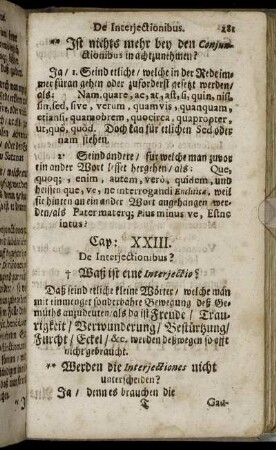 De Interjectionibus. 281
** Ist nichts mehr bey den Conjun-
ctionibus in acht zunehmen?
Ja / 1. Seind etliche / welche in der Rede im-
mer füran gehen oder zuforderst gesetzt werden/
als: Nam, quare, ac, at, ast, si, quin, nisi,
sin, sed, sive, verum, quamvis, quanquam,
etiamsi, quamobrem, quocirca, quapropter,
ut, quo, quòd. Doch kan für etlichen Sed oder
nam stehen.
2. Seind andere / für welche man zuvor
ein ander Wort lesset hergehen / als: Que,
quoq;, enim, autem, verò, quidem, und
heissen que, ve, ne interrogandi Encliticæ, weil
sie hinten an ein ander Wort angehangen wer-
den / als Pater materq; Plus minus ve, Estne
intus?
Cap: XXIII.
De Interjectionibus?
† Waß ist eine Interjectio?
Daß seind etliche kleine Wörter / welche man
mit einmenget sonderbahre Bewegung deß Ge-
müths anzudeuten / als da ist Freude / Trau-
rigkeit / Verwunderung / Bestürtzung /
Furcht / Eckel / &c. werden deßwegen so offt
nicht gebraucht.
** Werden die Interjectiones nicht
unterscheiden?
Ja / denn es brauchen die
T Gau-